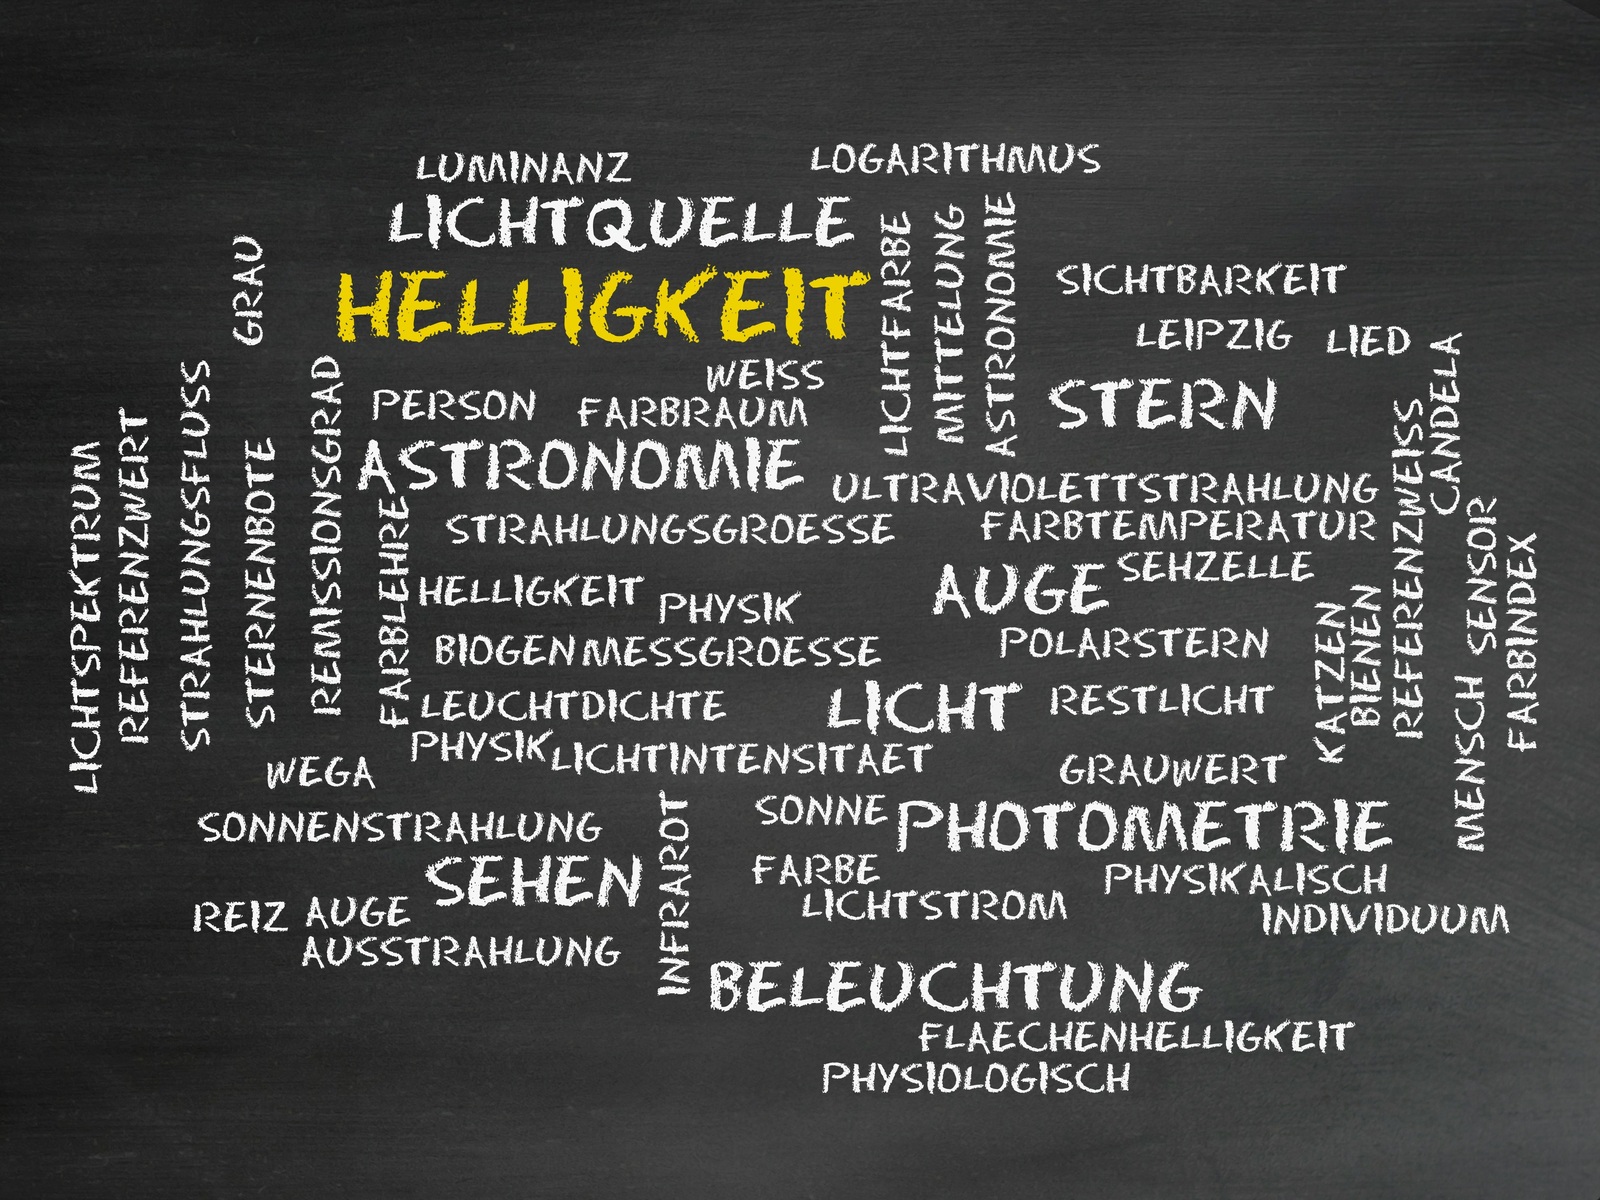 LUMINANZ
LOGARITHMUS
LICHTQUELLE
HELLIGKEIT
GRAU
LICHTFARBE
MITTELUNG
ASTRONOMIE
SICHTBARKEIT
LEIPZIG
LIED
WEISS
PERSON
FARBRAUM
STERN
CANDELA
ASTRONOMIE
ULTRAVIOLETTSTRAHLUNG
STRAHLUNGSGROESSE
FARBTEMPERATUR
LICHTSPEKTRUM
REFERENZWERT
STRAHLUNGSFLUSS
STERNENBOTE
REMISSIONSGRAD
FARBLEHRE
HELLIGKEIT
PHYSIK
AUGE
SEHZELLE
BIOGEN
MESSGROESSE
POLARSTERN
KATZEN
BIENEN
REFERENZWEISS
MENSCH
SENSOR
FARBINDEX
LEUCHTDICHTE
LICHT
RESTLICHT
PHYSIK
LICHTINTENSITAET
WEGA
GRAUWERT
SONNENSTRAHLUNG
INFRAROT
SONNE
PHOTOMETRIE
SEHEN
FARBE
PHYSIKALISCH
REIZ
AUGE
LICHTSTROM
INDIVIDUUM
AUSSTRAHLUNG
BELEUCHTUNG
FLAECHENHELLIGKEIT
PHYSIOLOGISCH